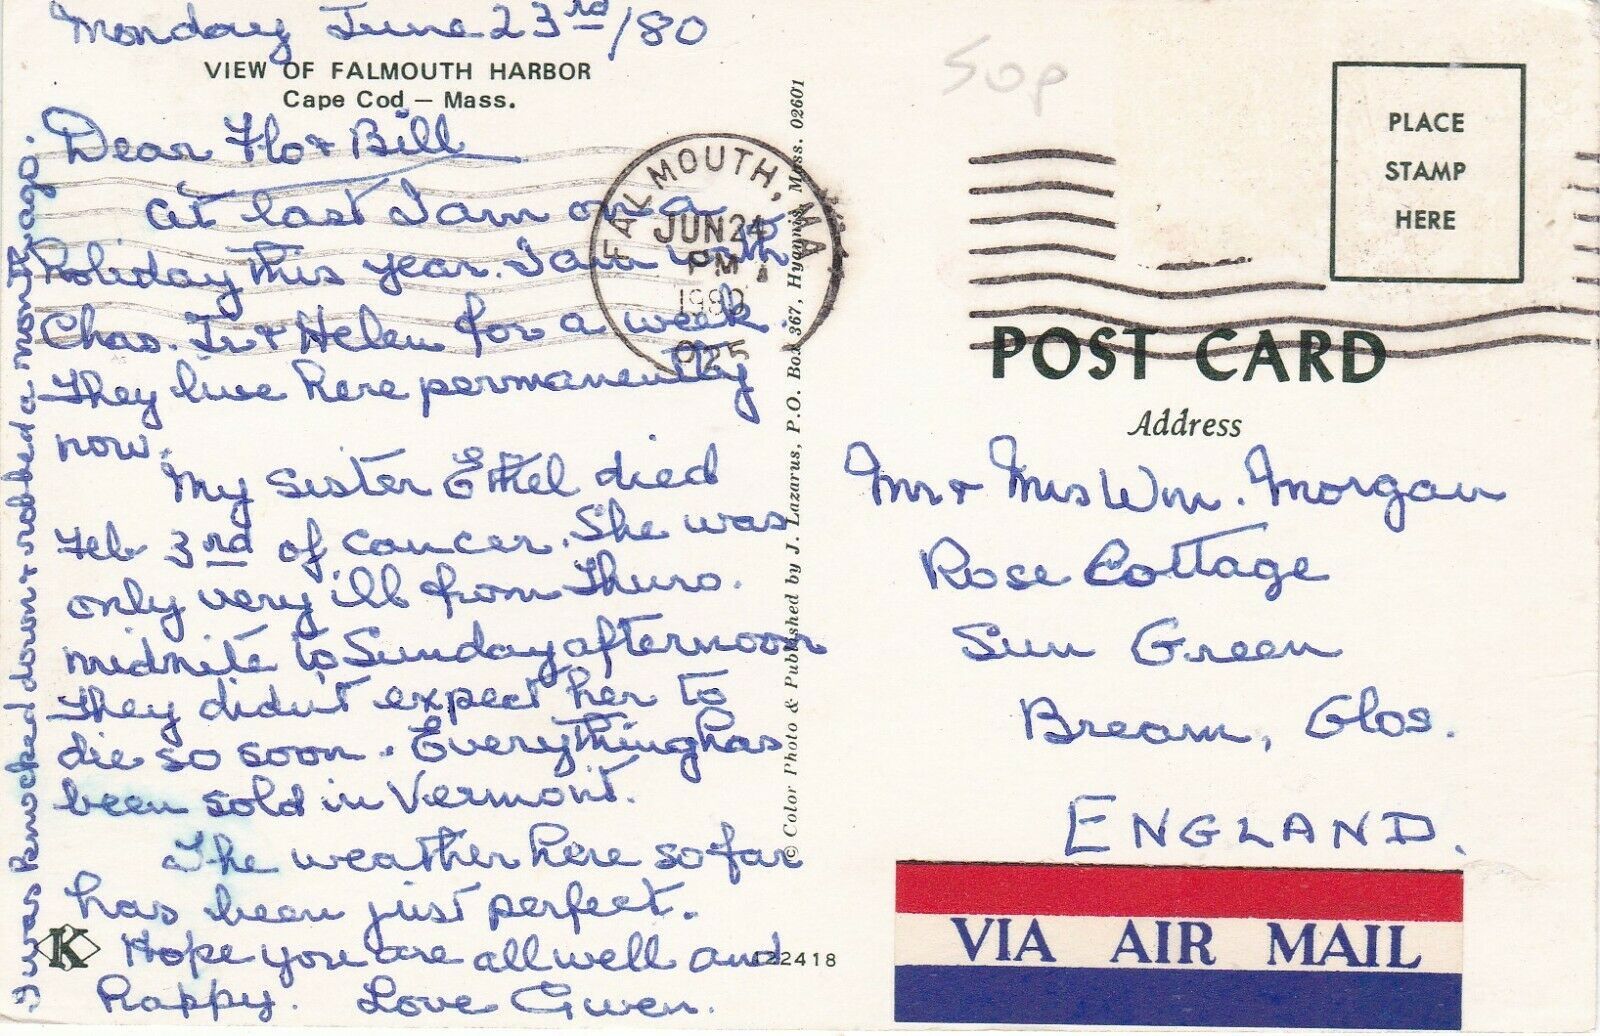 Monday June 23rd/80
VIEW OF FALMOUTH HARBOR
Cape Cod — Mass.
Dear Flo & Bill
At last I am on a
holiday this year. I am with
Chas. Jr & Helen for a week.
They live here permanently
now.
My sister Ethel died
Feb 3rd of cancer. She was
only very ill from Thurs.
midnite to Sunday afternoon
They didn't expect her to
die so soon. Everything has
been sold in Vermont.
The weather here so far
has been just perfect.
Hope you are all well and
happy. Love Gwen.
I was knocked down & robbed a month ago.
K
122418
© Color Photo & Published by J. Lazarus, P.O. Box 367, Hyannis, Mass. 02601
FALMOUTH, MA
JUN 24
PM
1980
025
50p
PLACE
STAMP
HERE
POST CARD
Address
Mr & Mrs Wm. Morgan
Rose Cottage
Sun Green
Bream, Glos.
ENGLAND.
VIA AIR MAIL